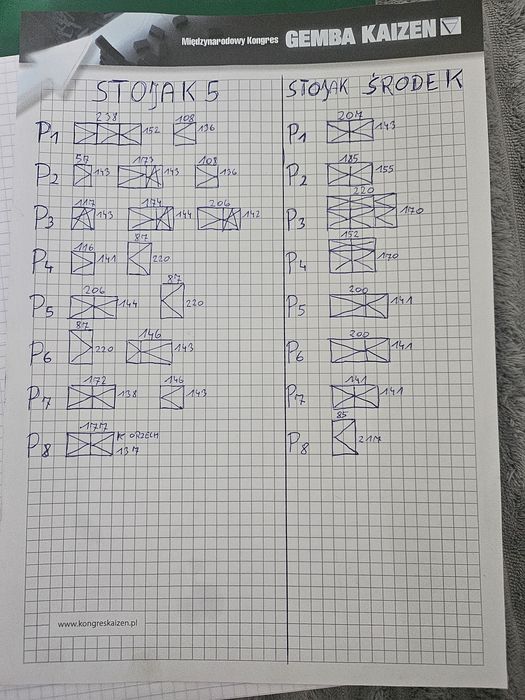 Międzynarodowy Kongres GEMBA KAIZEN
STOJAK 5
P1 238 152 108 136
P2 57 143 173 143 108 136
P3 117 143 174 144 206 142
P4 116 141 87 220
P5 206 144 87 220
P6 87 220 146 143
P7 172 138 146 143
P8 177 K ORZECH 137
STOJAK ŚRODEK
P1 207 143
P2 185 155
P3 220 170
P4 152 170
P5 200 141
P6 200 141
P7 141 141
P8 85 217
www.kongreskaizen.pl